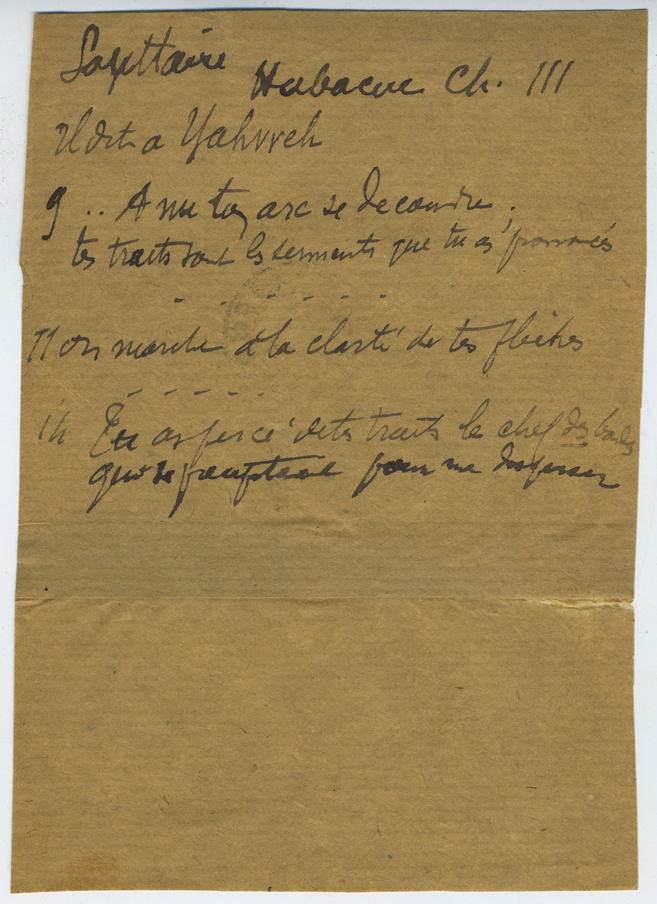 Sagittaire Habacuc Ch. III
Il dit a Yahvveh
9 .. A nu ton arc se decouvre,
tes traits sont les serments que tu as prononcés
- - - - - - -
11 on marche à la clarté de tes flèches
- - - - -
14 Tu as percé de tes traits le chef des bandes
qui se precipitaient pour me disperser